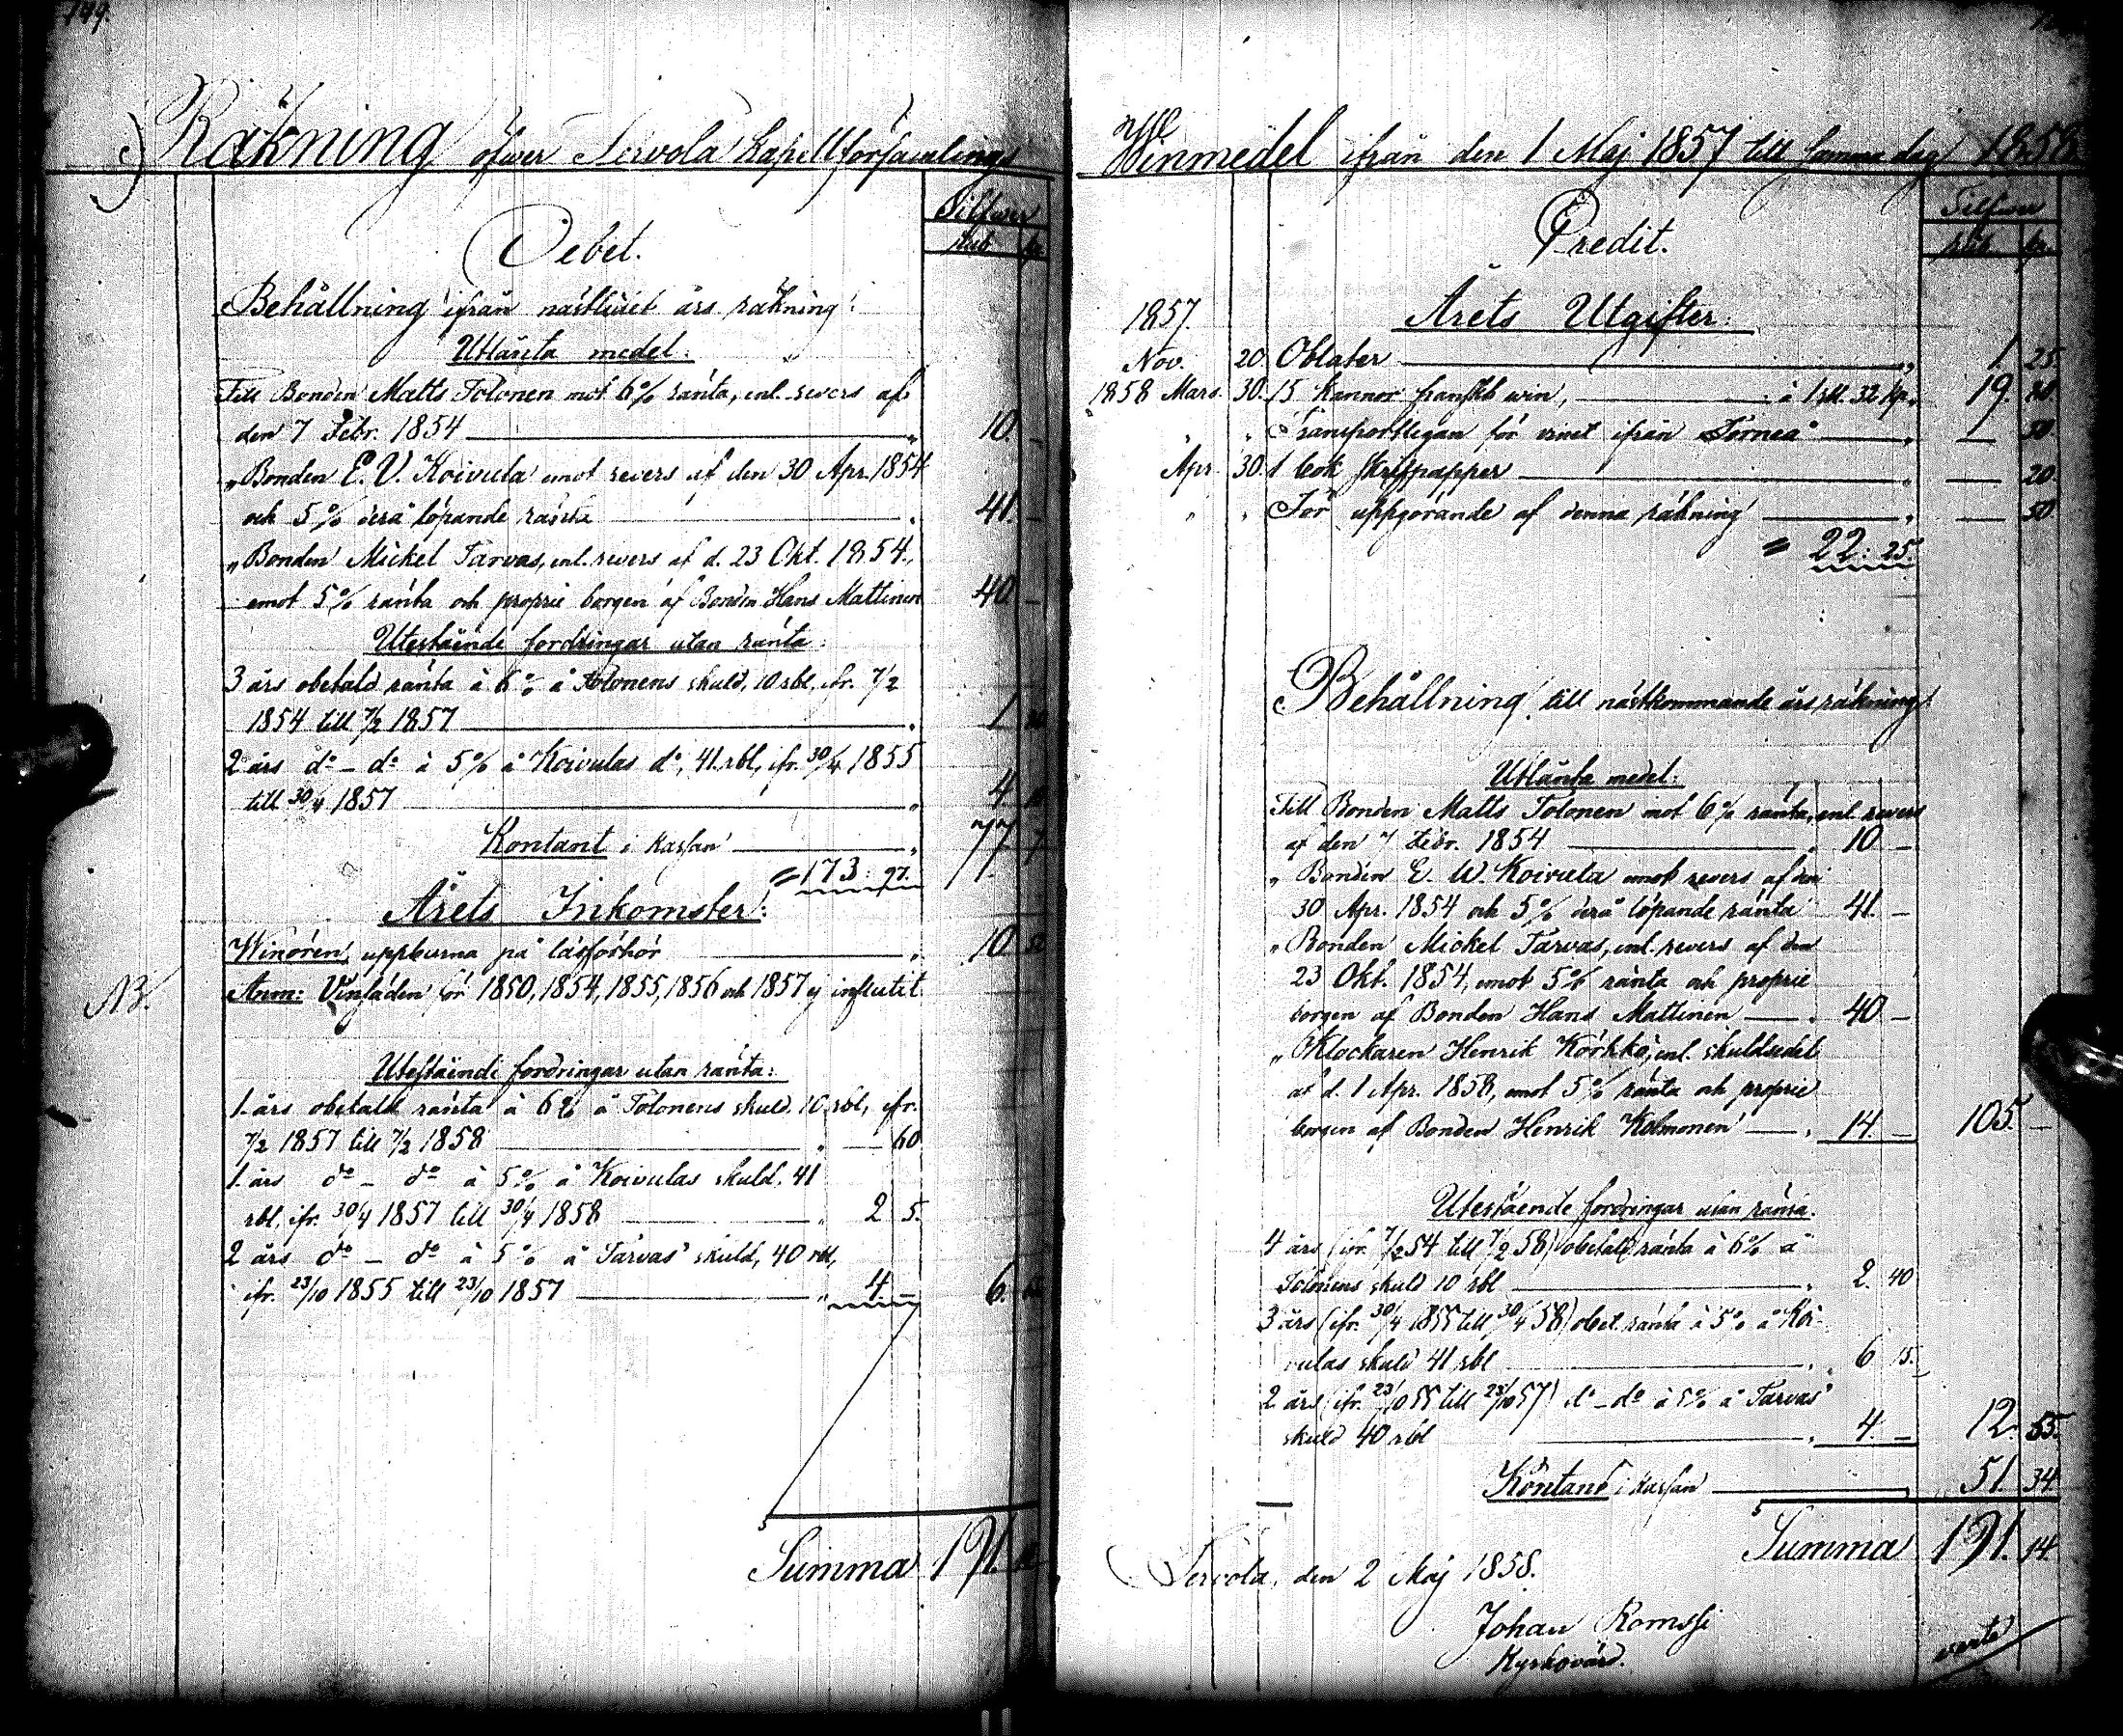 149.
Räkning öfwer Terwola Kapellförsamlings
Silfwer
Rub. kp.
Debet.
Behållning ifrån nästlidet års räkning:
Utlånta medel:
Till Bonden Matts Tolonen mot 6% ränta, enl. revers af
den 7 Febr. 1854 — „ 10. —
„ Bonden E. V. Koivula emot revers af den 30 Apr. 1854
och 5% derå löpande ränta — „ 41. —
„ Bonden Mickel Tarvas, enl. revers af d. 23 Okt. 1854.,
emot 5% ränta och proprie borgen af Bonden Hans Mattinen 40. —
Utestående fordringar utan ränta:
3 års obetald ränta à 6% å Tolonens skuld, 10 rbl, ifr. 7/2
1854 till 7/2 1857 — „ 1.
2 års do – do à 5% å Koivulas do, 41 rbl, ifr. 30/4 1855
till 30/4 1857 — „ 4. 10
Kontant i Kassan — „ 77. 7
= 173: 97.
Årets Inkomster:
Winören uppburna på läsförhör — „ 10. 52
NB. Anm: Vinsäden för 1850, 1854, 1855, 1856 och 1857 ej influtit.
Utestående fordringar utan ränta:
1. års obetald ränta à 6% å Tolonens skuld. 10 rbl, ifr.
7/2 1857 till 7/2 1858 — „ — 60
1. års do – do à 5% å Koivulas skuld. 41
rbl, ifr. 30/4 1857 till 30/4 1858 — „ 2. 5.
2 års do – do à 5% å Tarvas' skuld, 40 rbl,
ifr. 23/10 1855 till 23/10 1857 — „ 4. — 6.
Summa 191.
Winmedel ifrån den 1 Maj 1857 till samma dag 1858.
Silfwer
rub. kp.
Credit.
1857. Årets Utgifter:
Nov. 20. Oblater — „ 1. 25.
1858 Mars. 30. 15 Kannor franskt win, — à 1 rbl. 32 kp. „ 19. 80.
„ „ Transportlegan för vinet ifrån Torneå — „ — 50.
Apr. 30. 1 bok skrifpapper — „ — 20.
„ „ För uppgörande af denna räkning — „ — 50
= 22: 25.
Behållning till nästkommande års räkning:
Utlånta medel:
Till Bonden Matts Tolonen mot 6% ränta, enl. revers
af den 7 Febr. 1854 — „ 10 —
„ Bonden E. W. Koivula emot revers af den
30 Apr. 1854 och 5% derå löpande ränta 41. —
„ Bonden Mickel Tarvas, enl. revers af den
23 Okt. 1854, emot 5% ränta och proprie
borgen af Bonden Hans Mattinen — „ 40. —
„ Klockaren Henrik Körkkö, enl. skuldsedel
af d. 1 Apr. 1858, emot 5% ränta och proprie
borgen af Bonden Henrik Kolmonen — „ 14. — 105. —
Utestående fordringar utan ränta.
4 års (ifr. 7/2 54 till 7/2 58) obetald ränta à 6% å
Tolonens skuld 10 rbl — „ 2. 40
3 års (ifr. 30/4 1855 till 30/4 58) obet. ränta à 5% å Koi-
vulas skuld 41 rbl — „ 6. 15.
2 års (ifr. 23/10 55 till 23/10 57) do – do à 5% å Tarvas'
skuld 40 rbl — „ 4. — 12. 55.
Kontant i Kassan — „ 51. 34.
Summa 191. 14.
Tervola, den 2 Maj 1858.
Johan Romsji
Kyrkovärd.